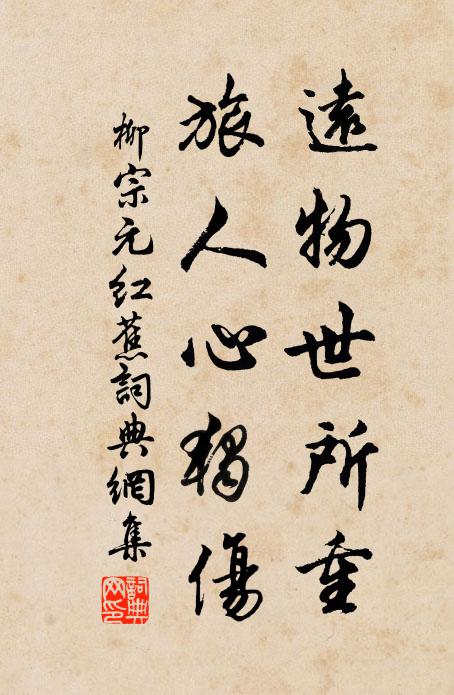 遠物世所重
旅人心獨傷
柳宗元紅蕉詞典網集
詞典網印